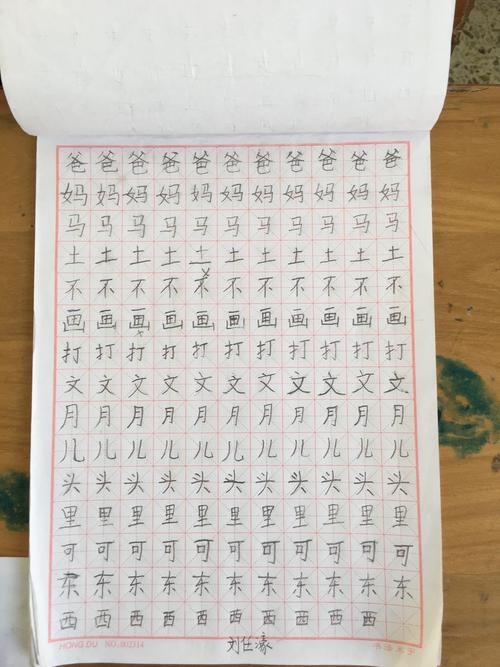 爸爸爸爸爸爸爸爸爸爸爸
妈妈妈妈妈妈妈妈妈妈妈
马马马马马马马马马马马
土土土土土土土土土土土
不不不不不不不不不不不
画画画画画画画画画画画
打打打打打打打打打打打
文文文文文文文文文文文
月月月月月月月月月月月
儿儿儿儿儿儿儿儿儿儿儿
头头头头头头头头头头头
里里里里里里里里里里里
可可可可可可可可可可可
东东东东东东东东东东东
西西西西西西西西西西
HONG DU NO.002314
刘仕濠